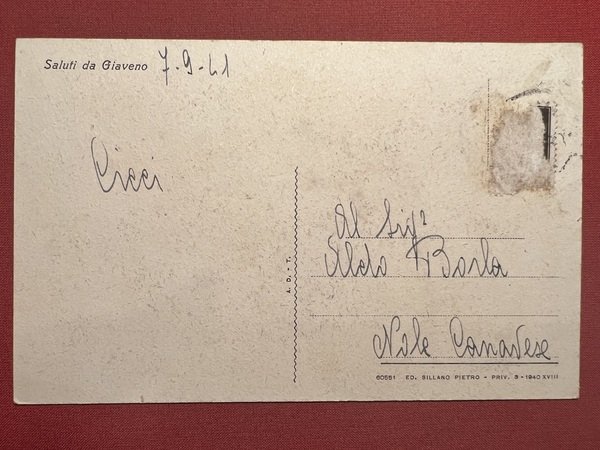 Saluti da Giaveno 7-9-41
Cicci
Al Sigr
Aldo Borla
Nole Canavese
A. D. - T.
60551 ED. SILLANO PIETRO - PRIV. 3 - 1940 XVIII